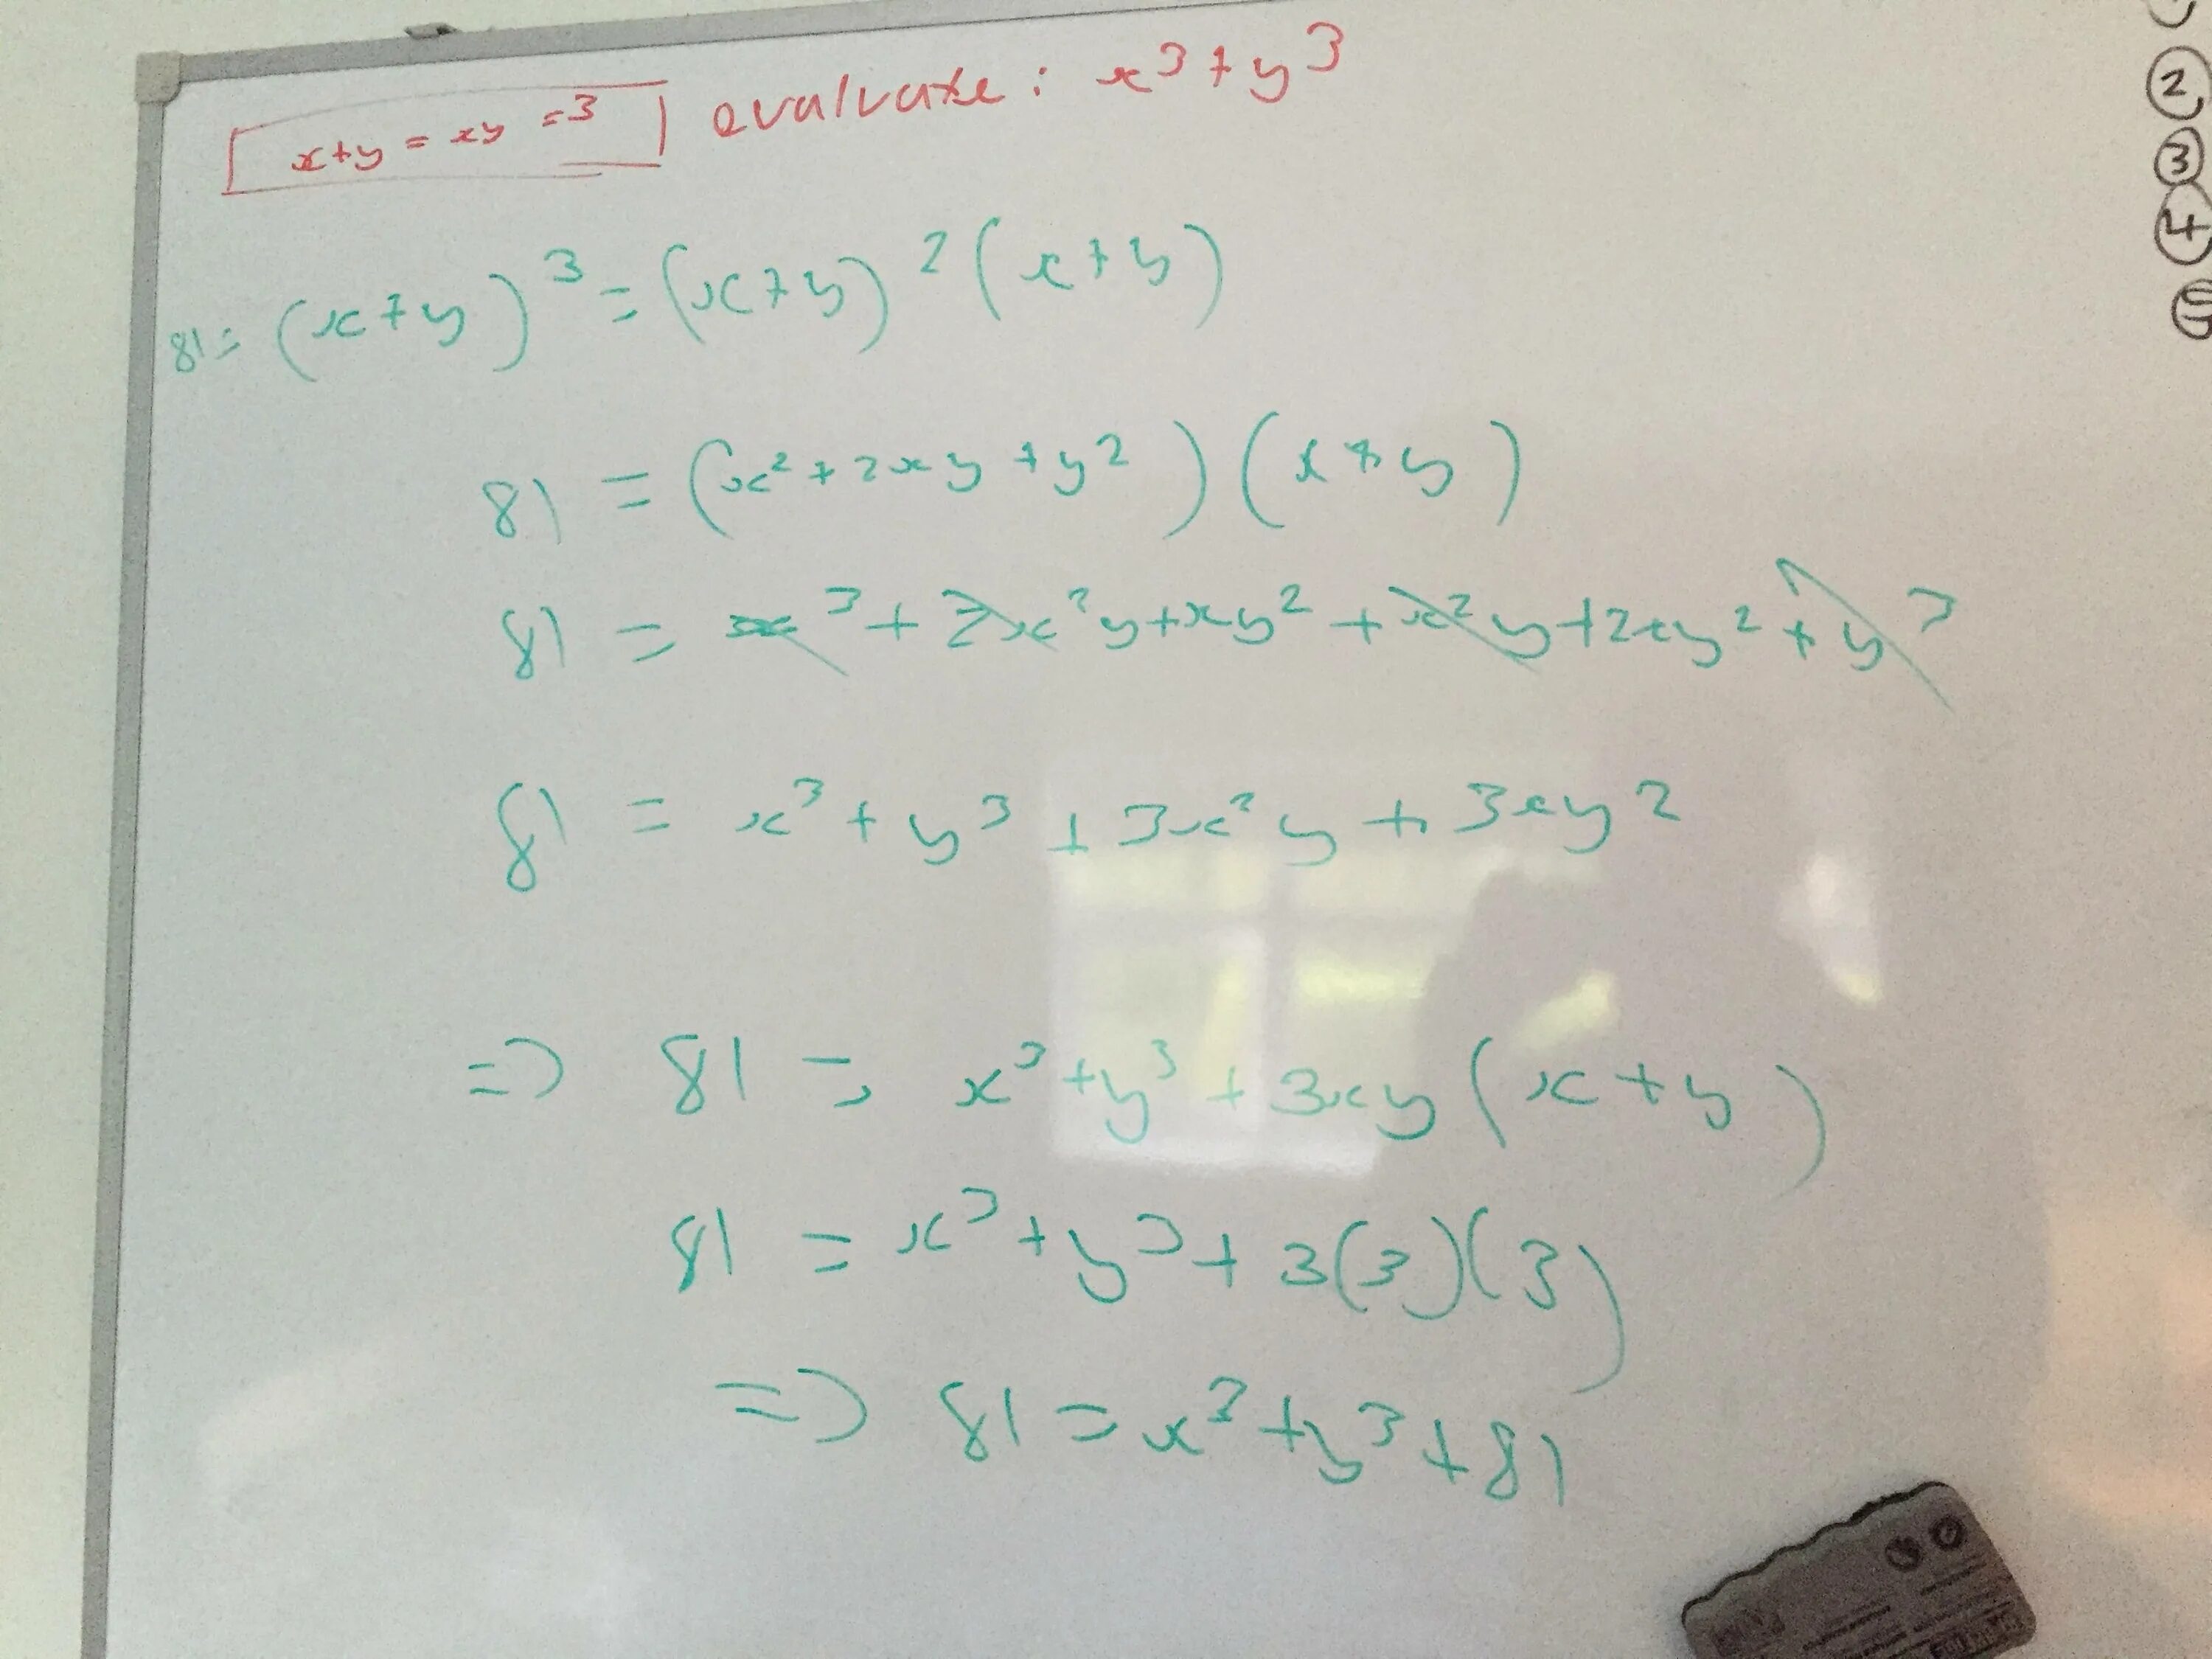 x+y = xy =3 evaluate: x³+y³
②
③
④
81= (x+y)³ = (x+y)²(x+y)
81 = (x²+2xy+y²)(x+y)
81 = x³+2x²y+xy²+x²y+2xy²+y³
81 = x³+y³+3x²y+3xy²
=> 81 = x³+y³+3xy(x+y)
81 = x³+y³+3(3)(3)
=> 81=x³+y³+81